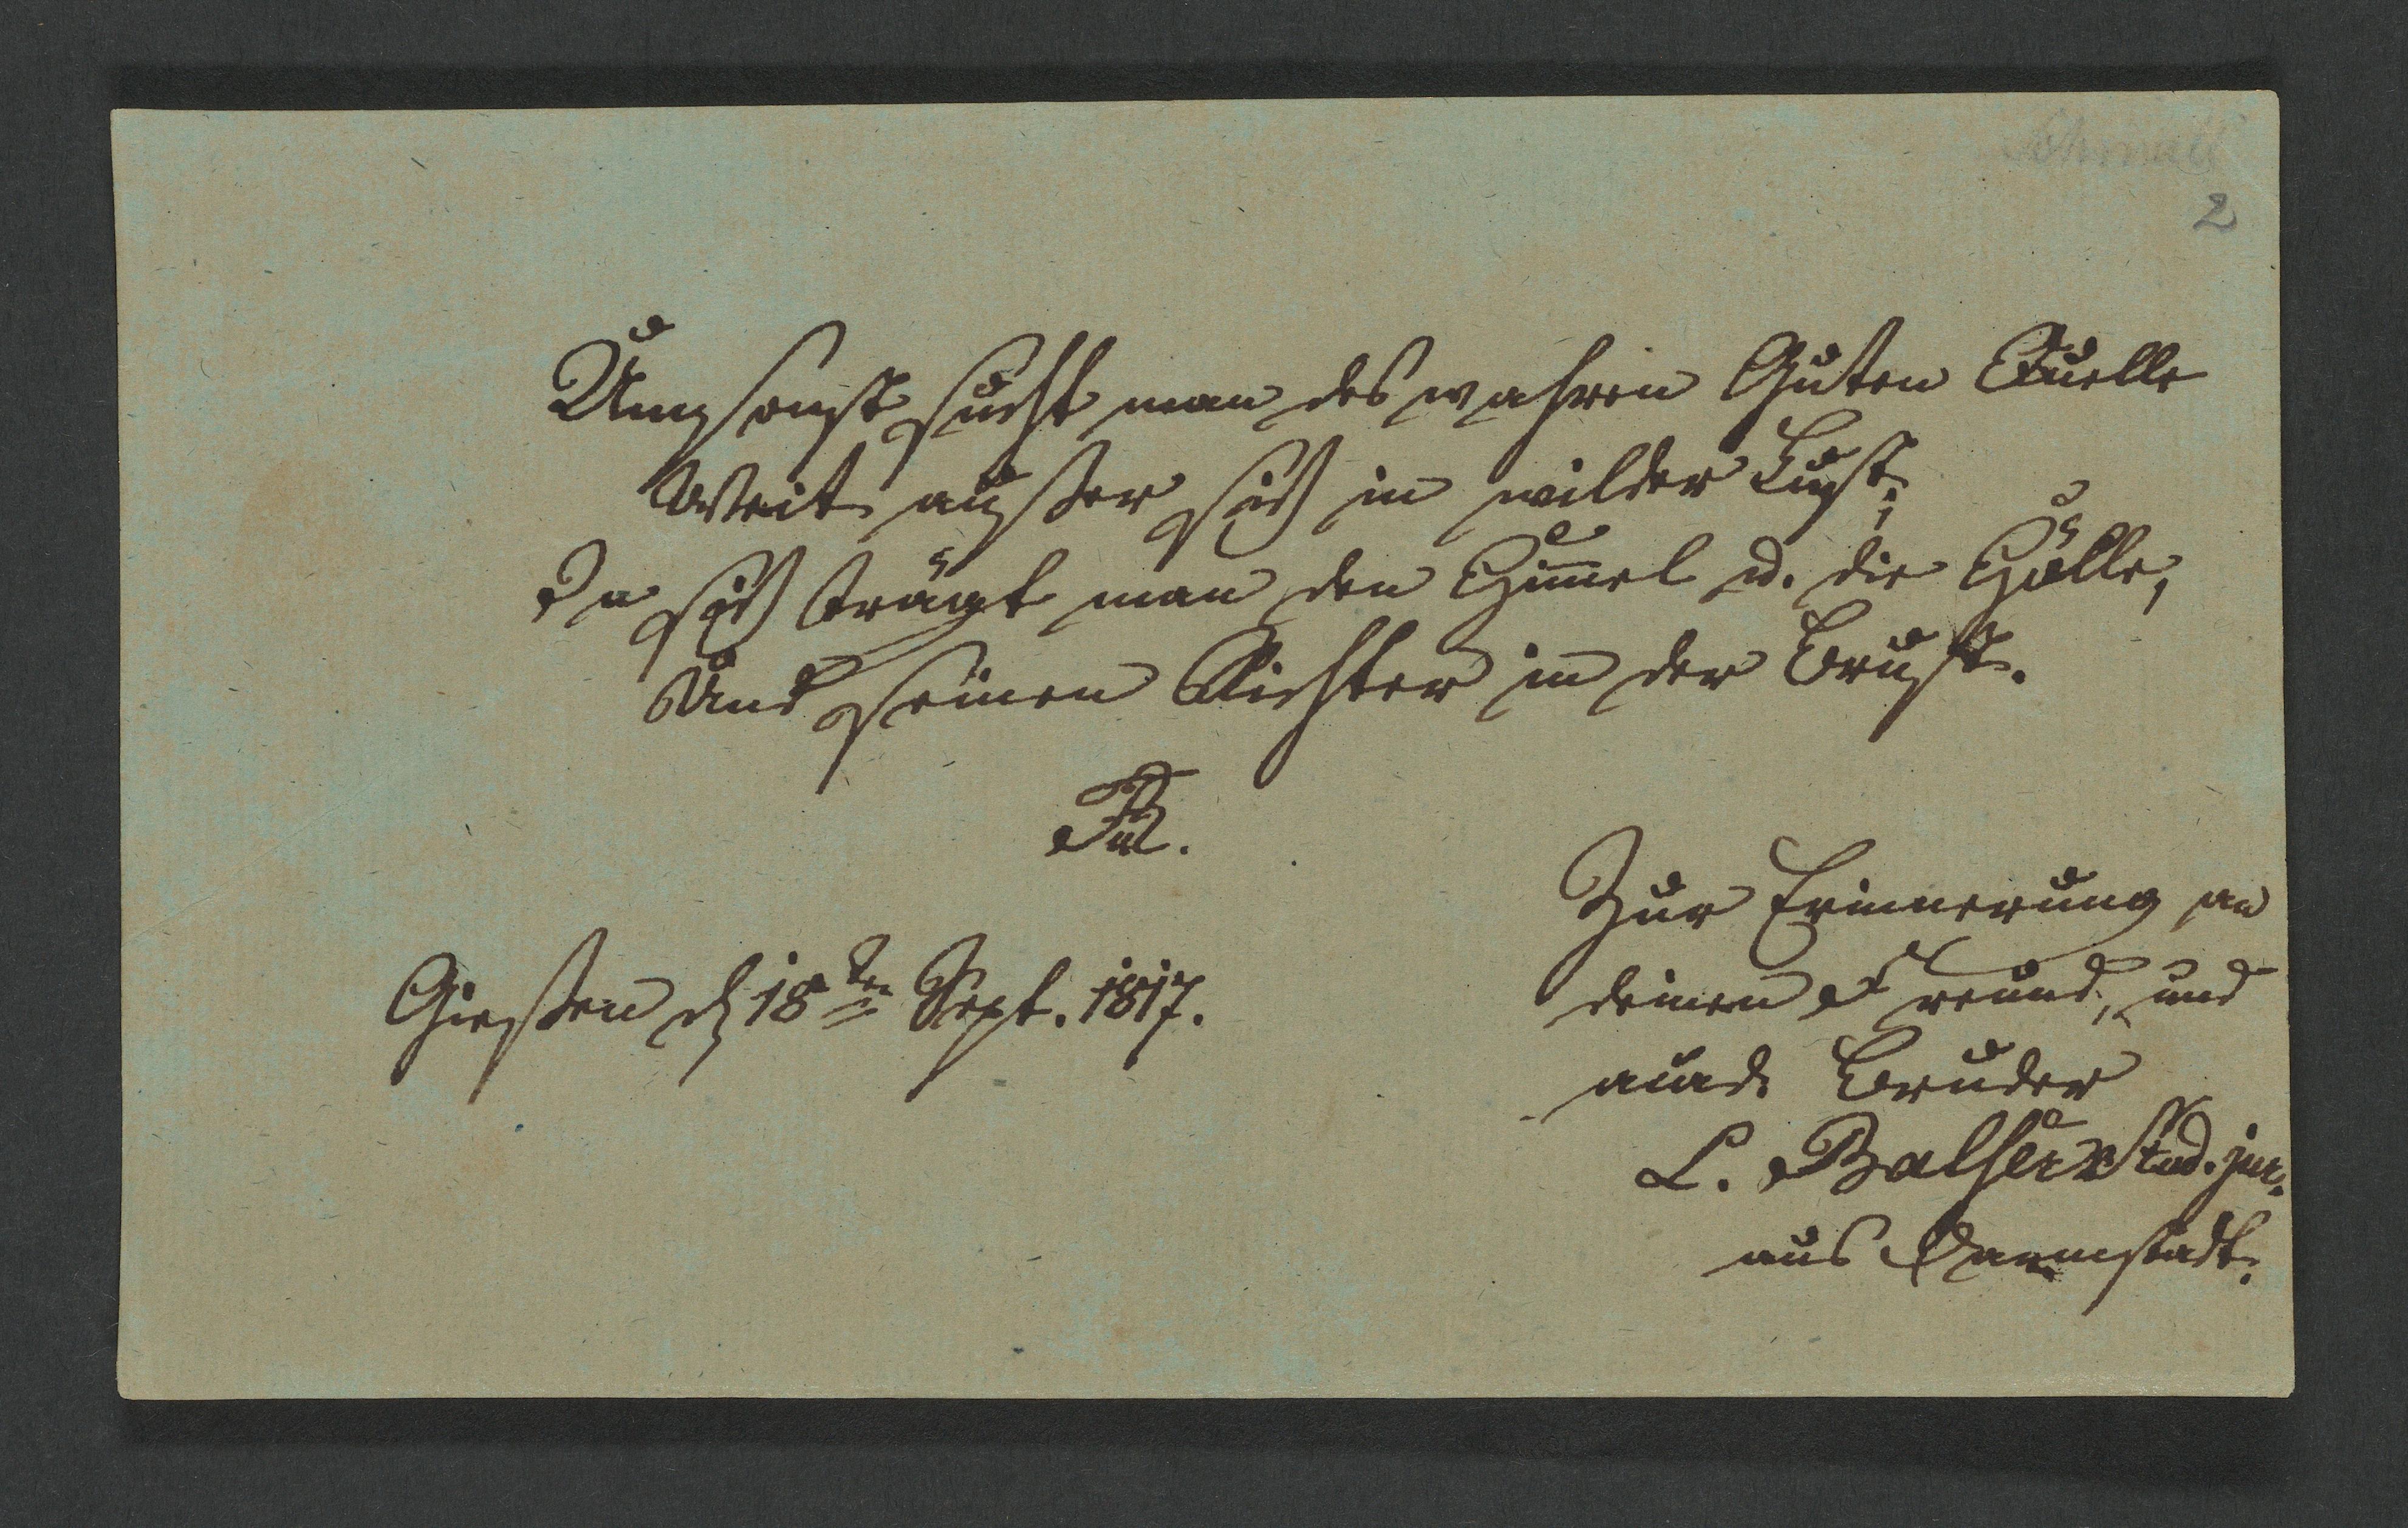 2
Umsonst sucht man des wahren Guten Quelle
Weit außer sich in wilder Lust;
In sich trägt man den Himmel u. die Hölle,
Und seinen Richter in der Brust.
Giessen d 18ten Sept. 1817.
Zur Erinnerung an
deinen Freund, und
Bruder
L. Balser Stud. jur.
aus Darmstadt.